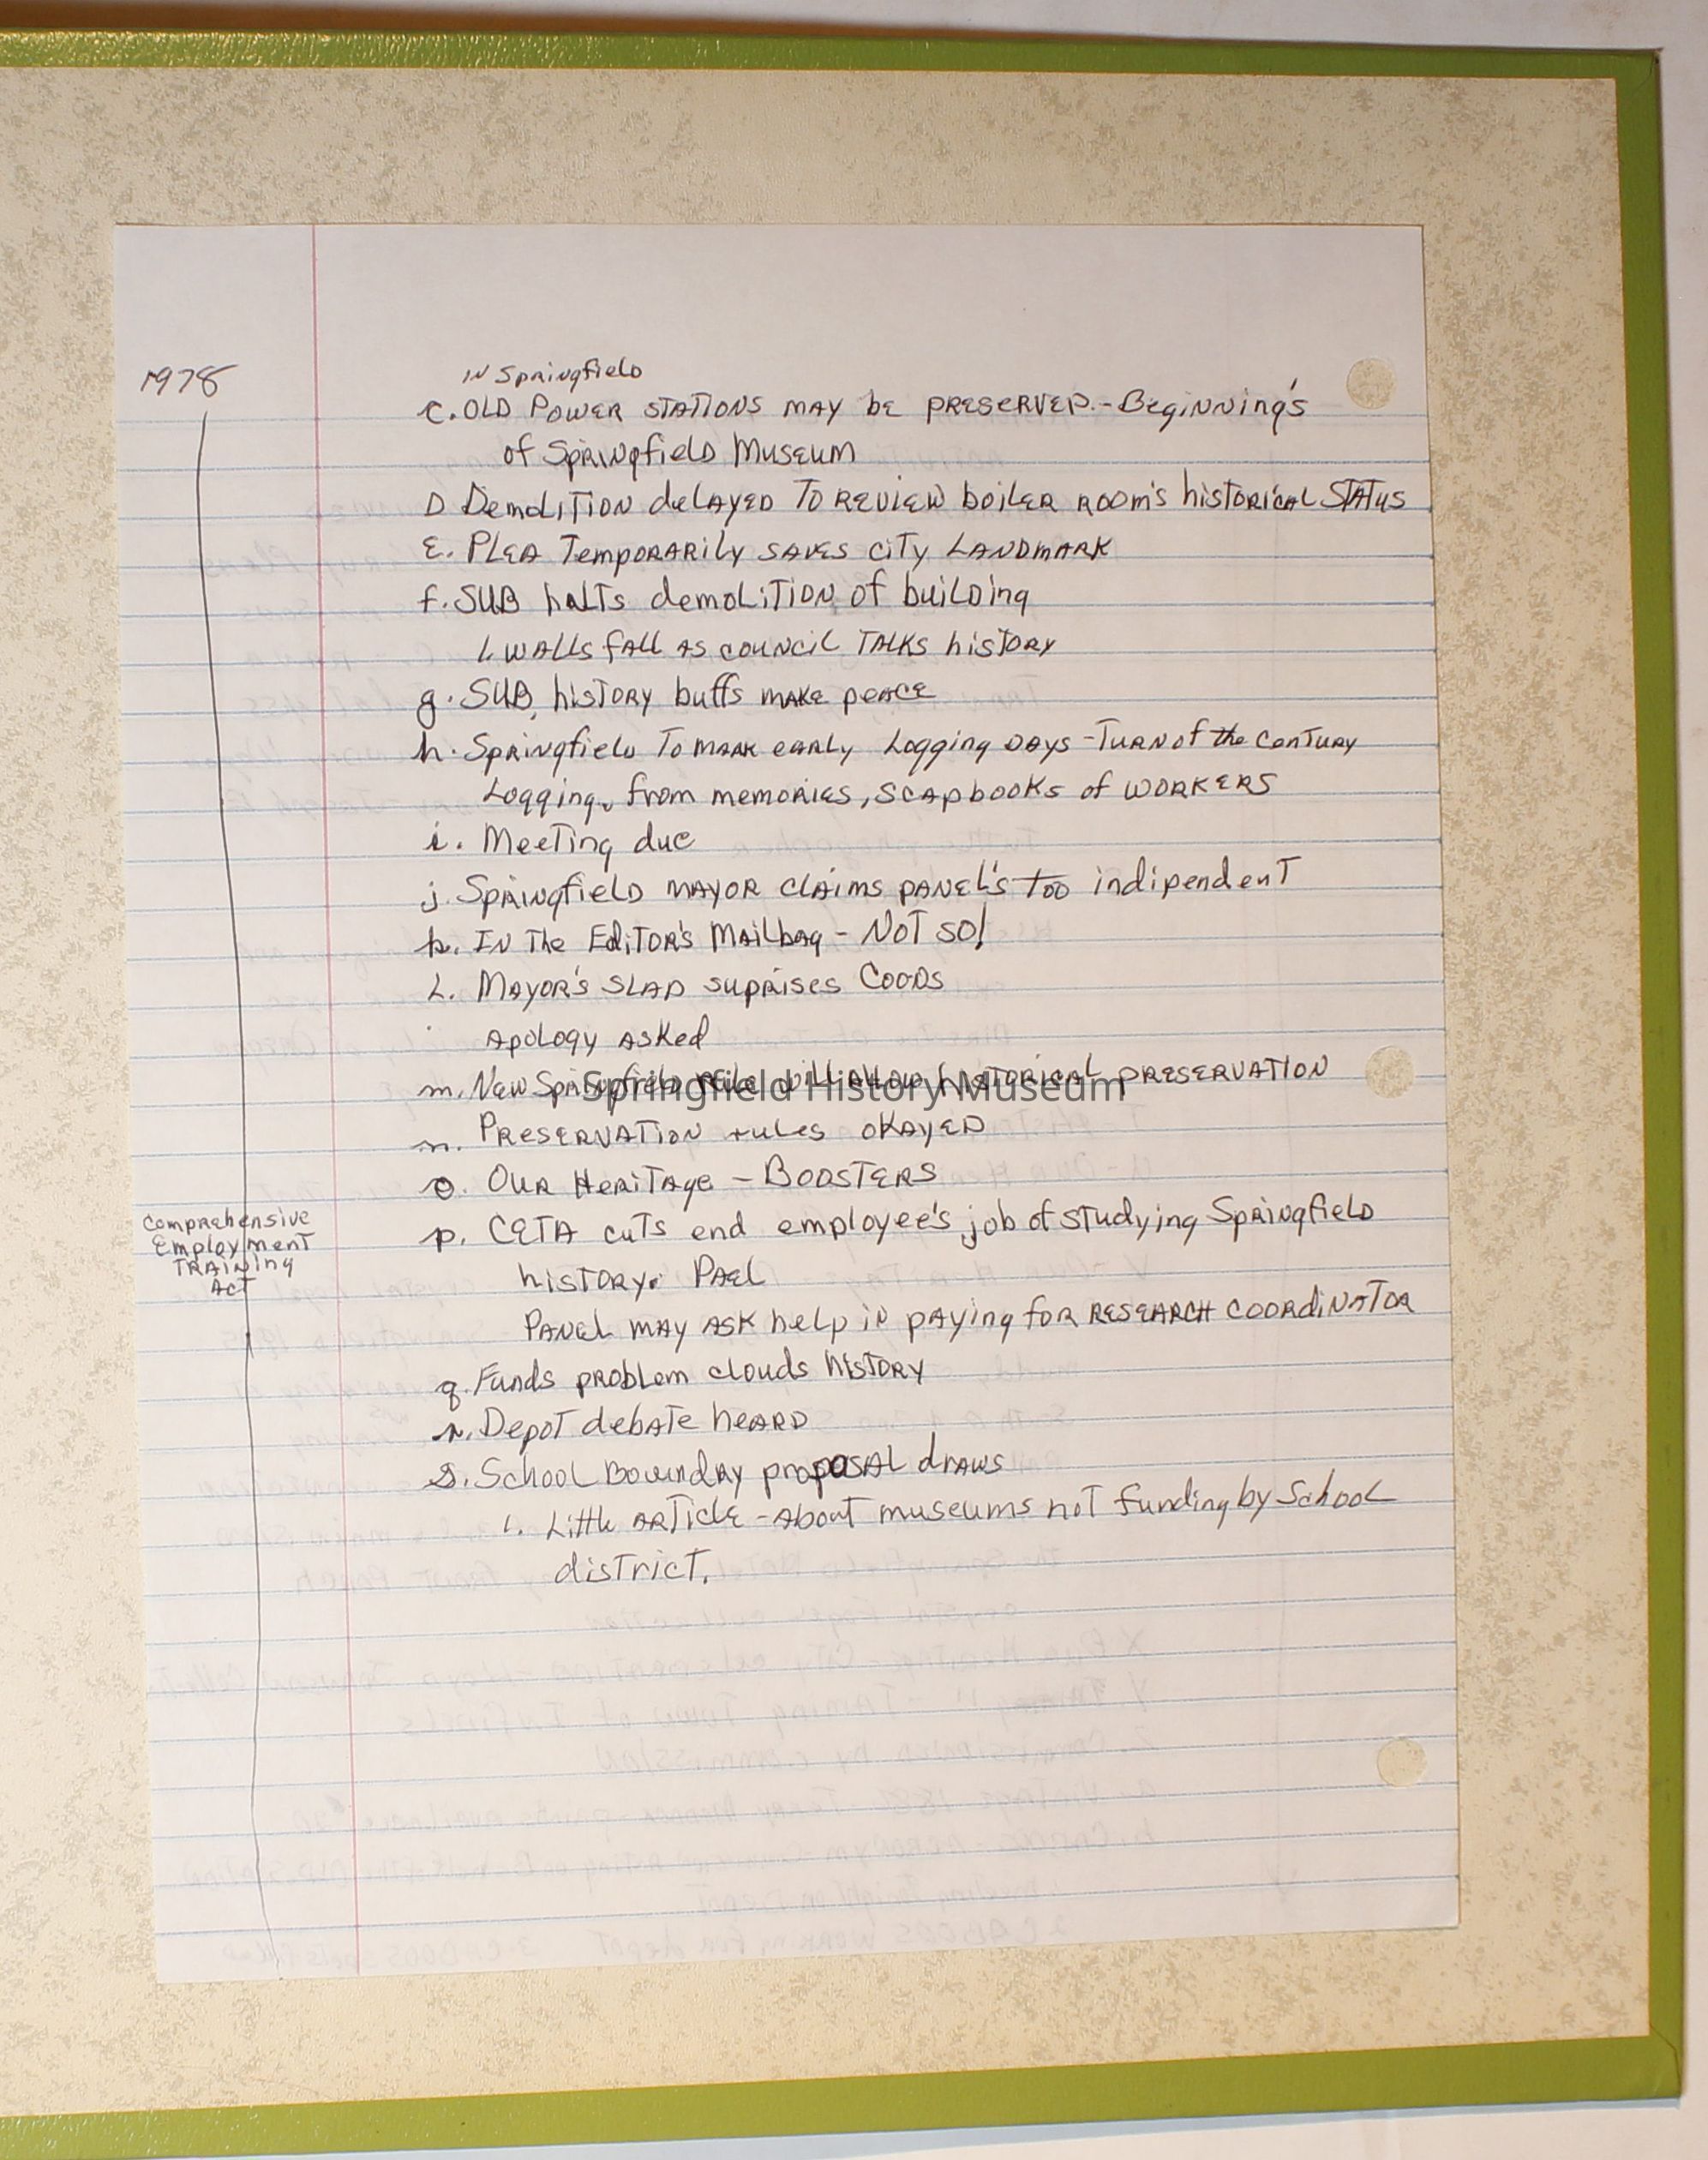 1978
IN Springfield
c. OLD POWER STATIONS MAY be PRESERVED.-Beginning's
of Springfield Museum
D Demolition delayed To REVIEW boiler room's historical STATUS
E. PLEA Temporarily SAVES CITY LANDMARK
f. SUB halts demolition of building
1. WALLS fall AS COUNCIL TALKS history
g. SUB, history buffs make peace
h. Springfield To mark early Logging DAYS - Turn of the Century
Logging, from memories, SCAPbooks of WORKERS
i. Meeting due
j. Springfield MAYOR claims PANEL's too indipendent
k. IN The Editor's Mailbag - NOT SO!
L. Mayor's SLAP suprises Coons
Apology Asked
m. New Springfield rule will allow historical PRESERVATION
Springfield History Museum
n. PRESERVATION rules OKAYED
o. OUR Heritage - BOOSTERS
Comprehensive
Employment
TRAINING
ACT
p. CETA cuts end employee's job of studying Springfield
history. Pael
PANEL MAY ASK help in paying for RESEARCH COORDINATOR
q. Funds problem clouds history
r. Depot debate heard
s. School Boundry proposal draws
1. Little ARTicle - About museums not funding by School
district.